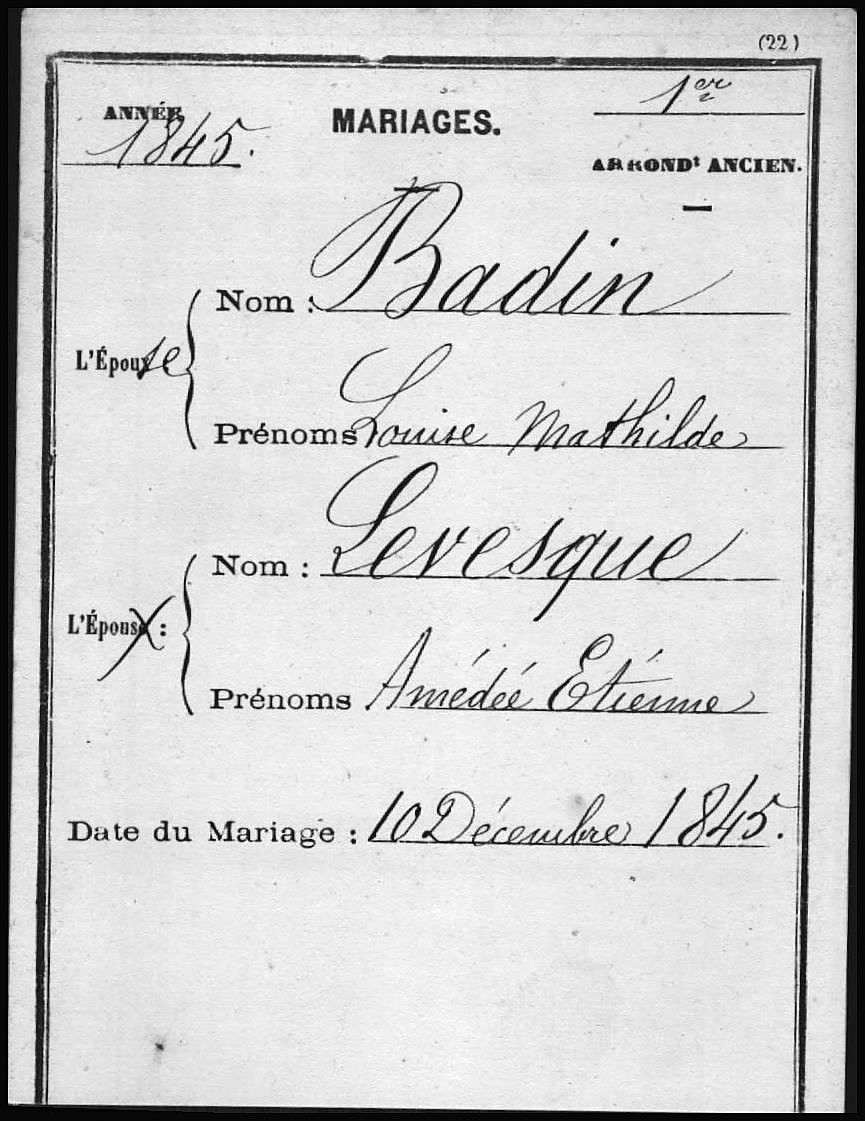 (22)
ANNÉE 1845. MARIAGES. 1er
ARRONDt ANCIEN.
Nom : Badin
L'Épouse
Prénoms Louise Mathilde
Nom : Levesque
L'Épouse :
Prénoms Amédée Etienne
Date du Mariage : 10 Décembre 1845.